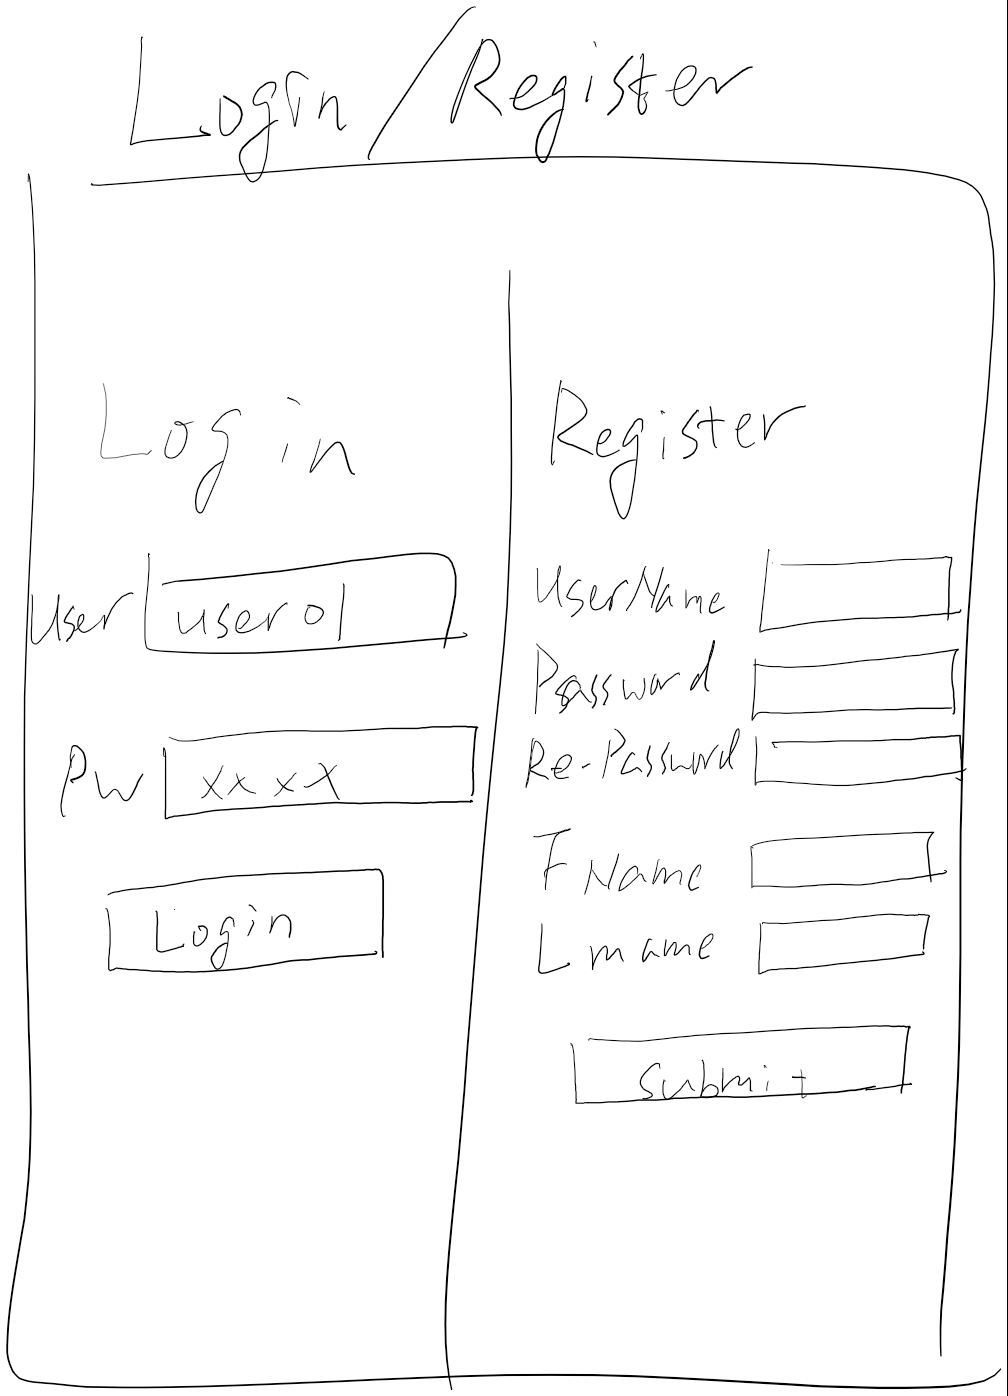 Login/Register
Login
User user01
Pw xxxx
Login
Register
UserName
Password
Re-Password
F Name
L name
Submit